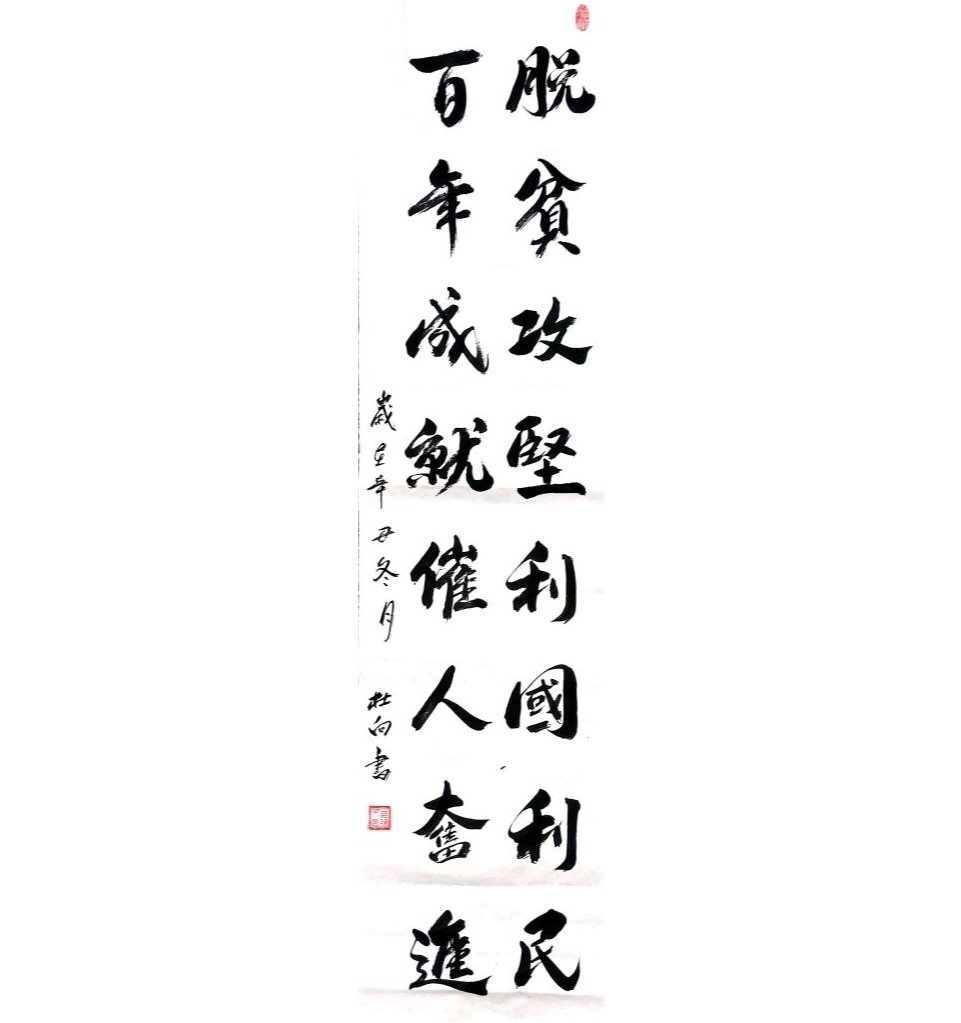 脱貧攻堅利國利民
百年成就催人奮進
歲在辛丑冬月
杜向書